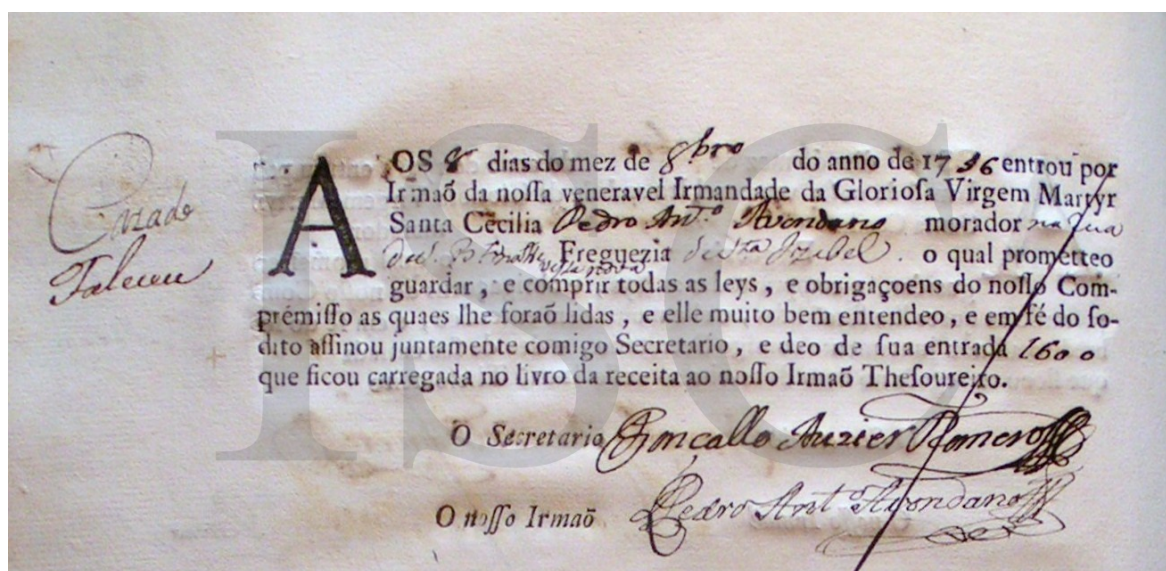 AOS 8 dias do mez de 8bro do anno de 1756 entrou por
Irmaõ da noſſa veneravel Irmandade da Glorioſa Virgem Martyr
Santa Cecilia Pedro Ant.º Avondano morador na rua
Freguezia de S.ta Izabel. o qual prometteo
guardar, e comprir todas as leys, e obrigaçoens do noſſo Com-
premiſſo as quaes lhe foraõ lidas, e elle muito bem entendeo, e em fé do ſo-
dito aſſinou juntamente comigo Secretario, e deo de ſua entrada 1600
que ficou carregada no livro da receita ao noſſo Irmaõ Theſoureiro.
Cazado
Faleceu
O Secretario Gonçallo Auzier Romero
O noſſo Irmaõ Pedro Ant.º Avondano
ISC